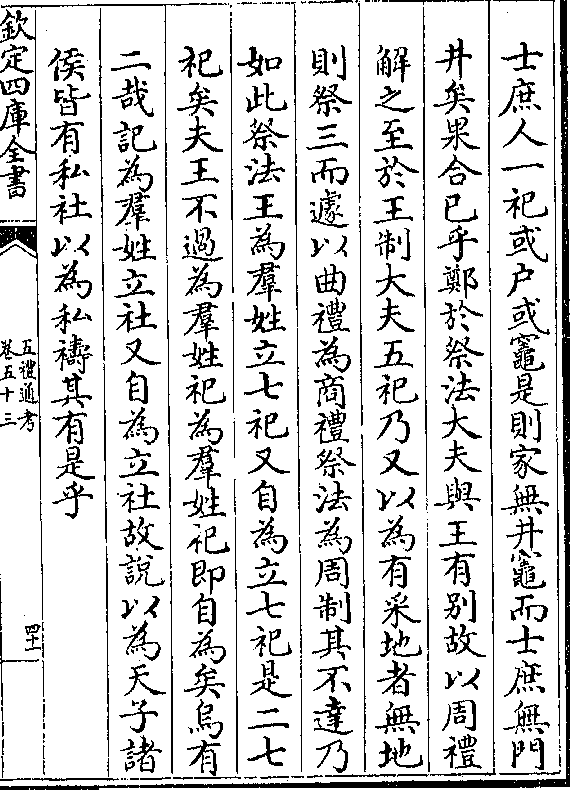 士庶人一祀或户或竈是則家無井竈而士庶無門
井矣果合已乎鄭於祭法大夫與王有别故以周禮
解之至於王制大夫五祀乃又以為有采地者無地
則祭三而遽以曲禮為商禮祭法為周制其不達乃
如此祭法王為羣姓立七祀又自為立七祀是二七
祀矣夫王不過為羣姓祀為羣姓祀即自為矣烏有
二哉記為羣姓立社又自為立社故說以為天子諸
侯皆有私社以為私禱其有是乎
欽定四庫全書
五禮通考
卷五十三